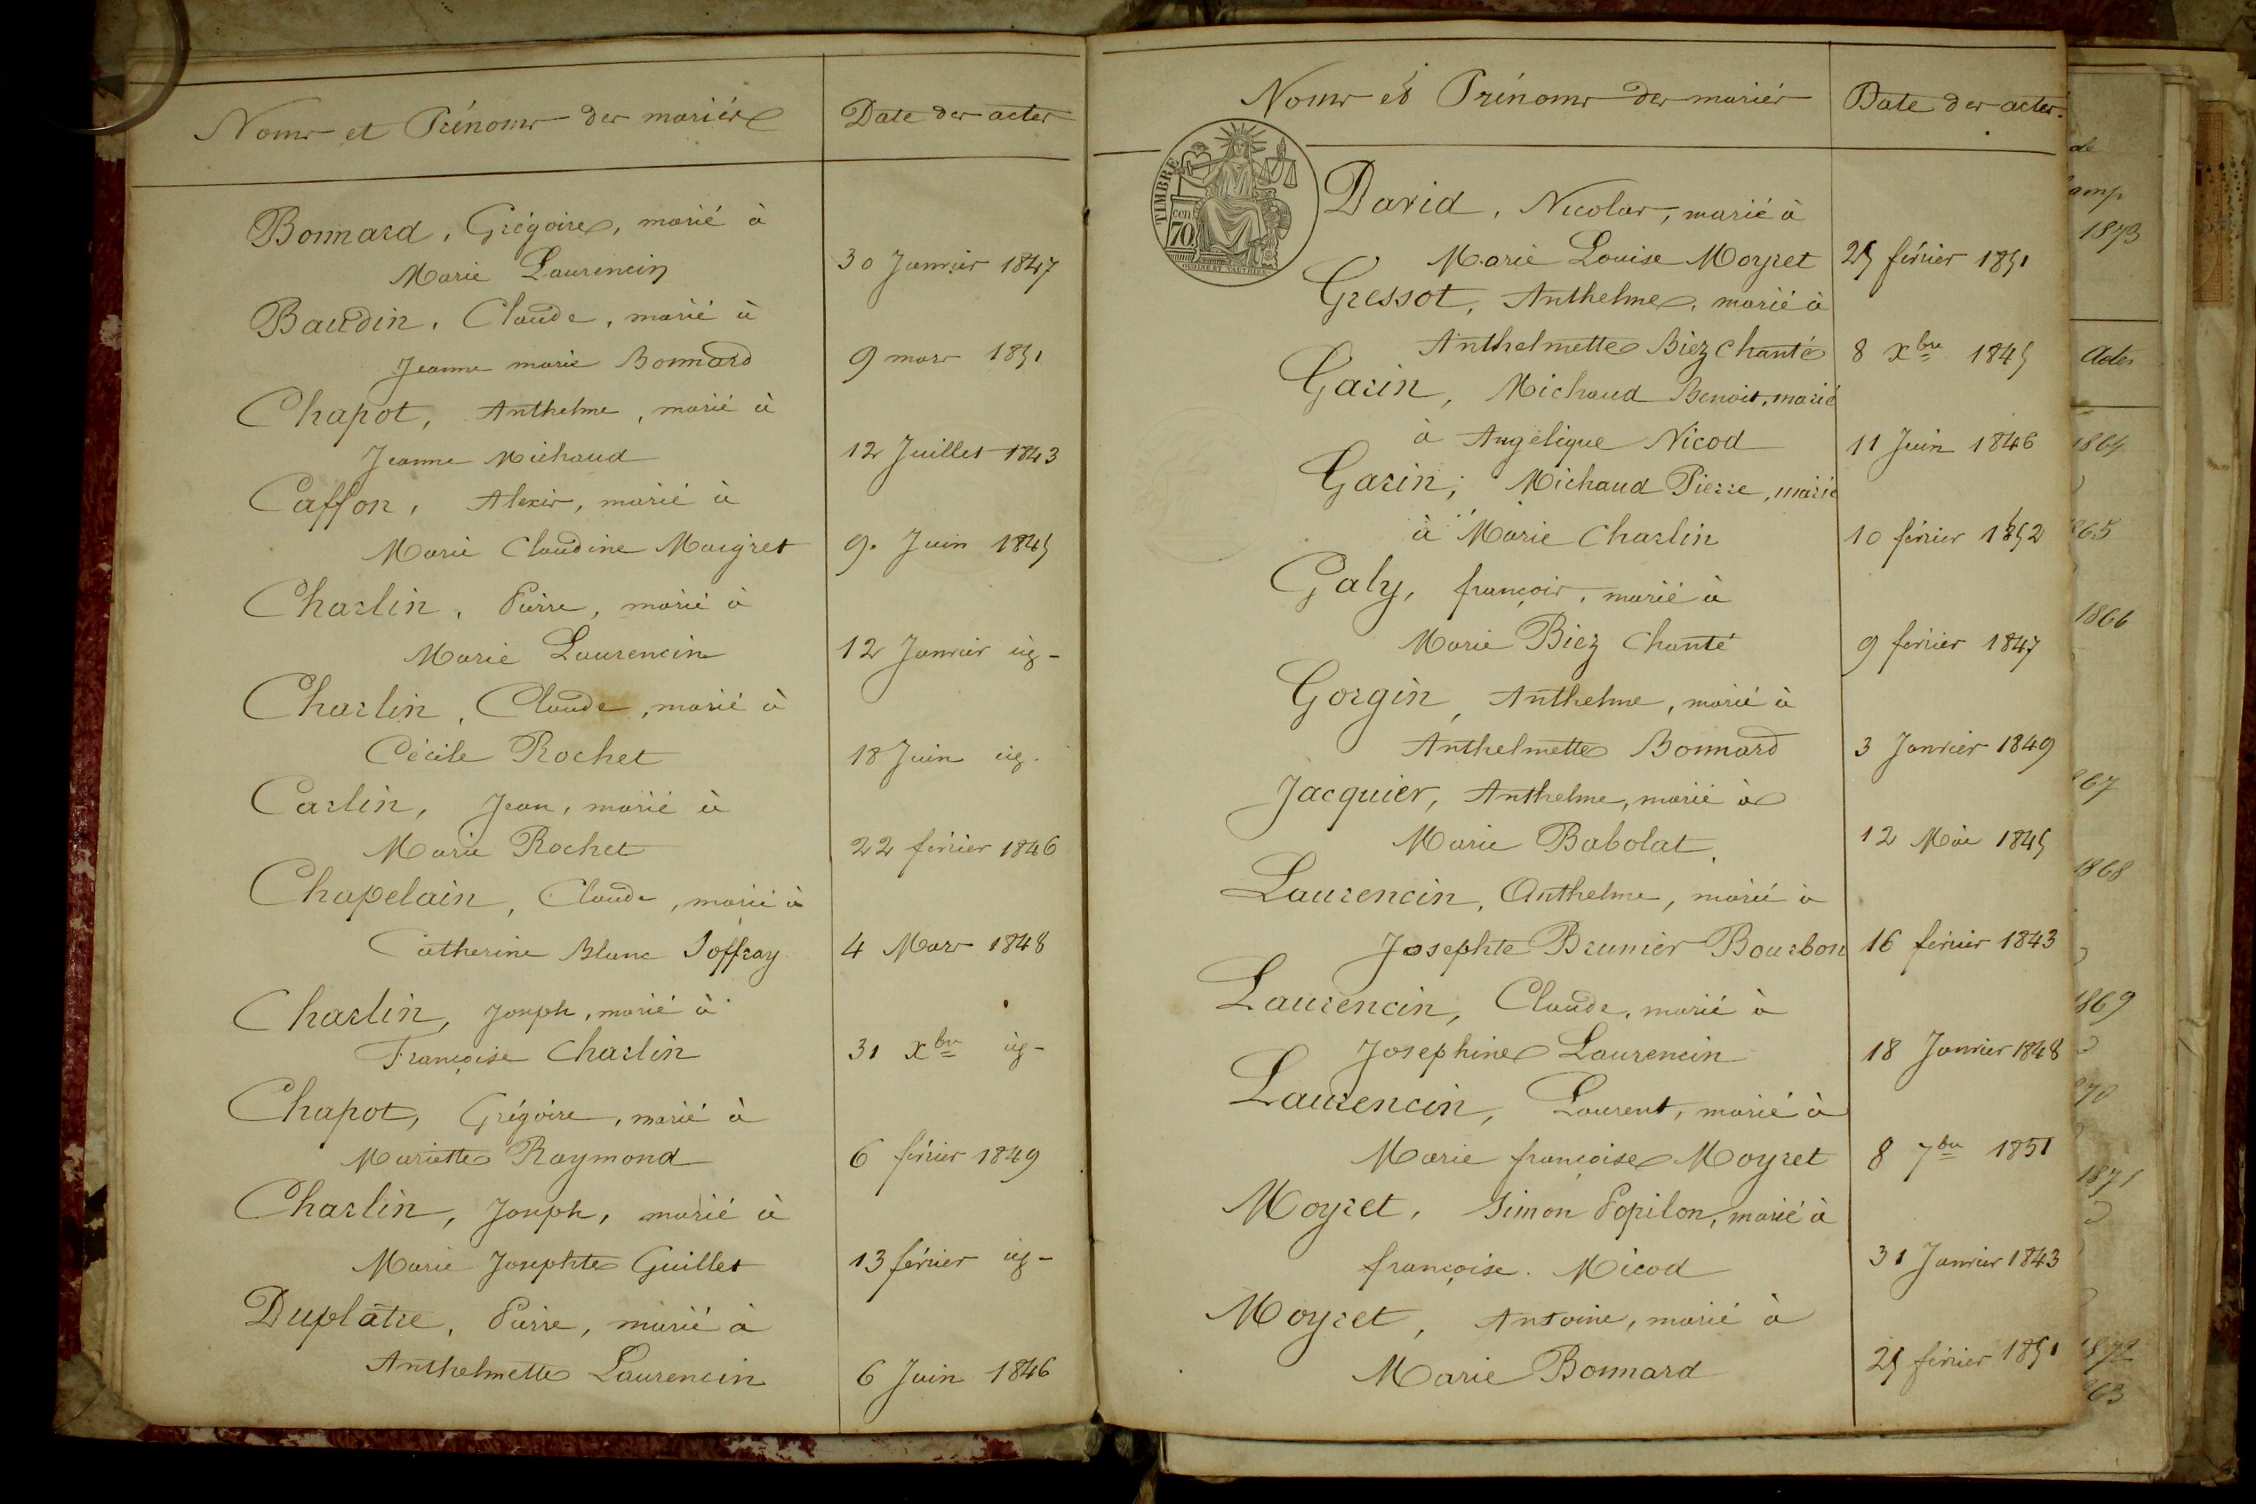 Noms et Prénoms des mariés
Date des actes
Bonnard, Grégoire, marié à
Marie Laurencin
30 Janvier 1847
Baudin, Claude, marié à
Jeanne marie Bonnard
9 mars 1851
Chapot, Anthelme, marié à
Jeanne Michaud
12 Juillet 1843
Caffon, Alexis, marié à
Marie Claudine Maigret
9. Juin 1845
Charlin, Pierre, marié à
Marie Laurencin
12 Janvier
Charlin, Claude, marié à
Cécile Rochet
18 Juin
Carlin, Jean, marié à
Marie Rochet
22 février 1846
Chapelain, Claude, marié à
Catherine Blanc Joffray
4 Mars 1848
Charlin, Joseph, marié à
Françoise Charlin
31 Xbre
Chapot, Grégoire, marié à
Mariette Raymond
6 février 1849
Charlin, Joseph, marié à
Marie Josephte Guillet
13 février
Duplatre, Pierre, marié à
Anthelmette Laurencin
6 Juin 1846
Noms et Prénoms des mariés
Date des actes.
TIMBRE
cen
70
David, Nicolas, marié à
Marie Louise Moyret
25 février 1851
Gressot, Anthelme, marié à
Anthelmette Biez Chanté
8 Xbre 1845
Garin, Michaud Benoit, marié
à Angélique Nicod
11 Juin 1846
Garin, Michaud Pierre, marié
à Marie Charlin
10 février 1852
Galy, françois, marié à
Marie Biez Chanté
9 février 1847
Gorgin, Anthelme, marié à
Anthelmette Bonnard
3 Janvier 1849
Jacquier, Anthelme, marié à
Marie Babolat
12 Mai 1845
Laurencin, Anthelme, marié à
Josephte Brunier Bourbon
16 février 1843
Laurencin, Claude, marié à
Josephine Laurencin
18 Janvier 1848
Laurencin, Laurent, marié à
Marie françoise Moyret
8 7bre 1851
Moyret, Simon Papilon, marié à
françoise. Micod
31 Janvier 1843
Moyret, Antoine, marié à
Marie Bonnard
25 février 1851
1873
Actes
1864
1866
1868
1869
1871
1872